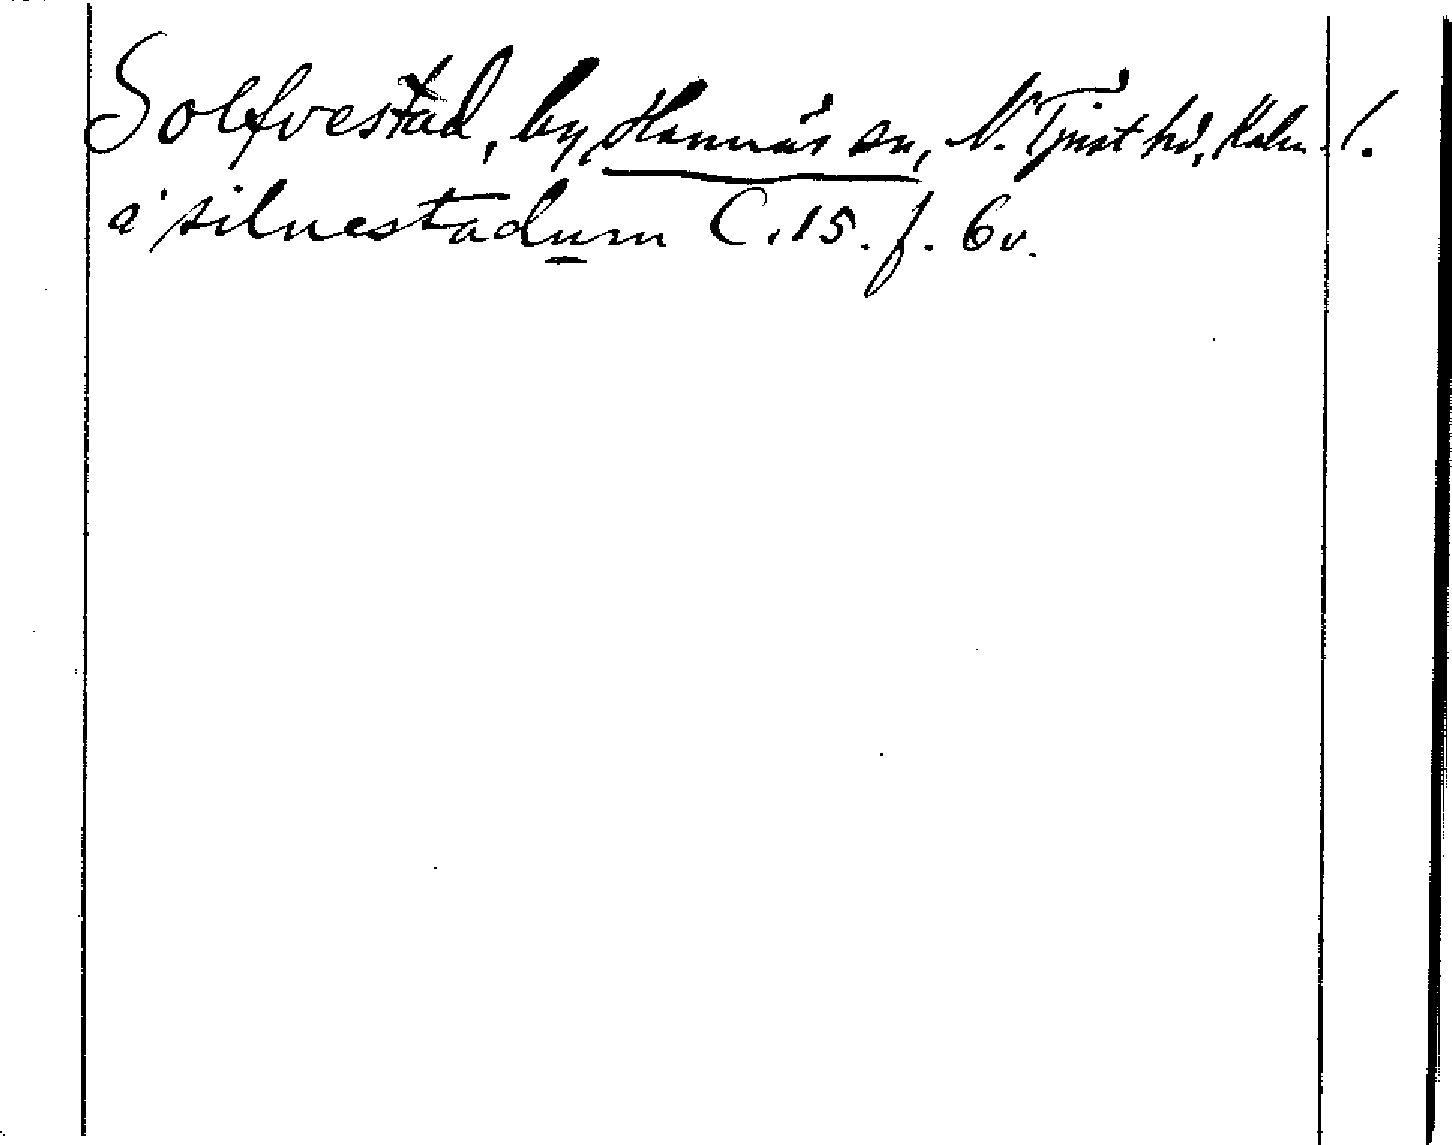 Solfvestad, by, Hannäs sn, N. Tjust hd, Kalm. l.
a' siluestadum C. 15. f. 6v.